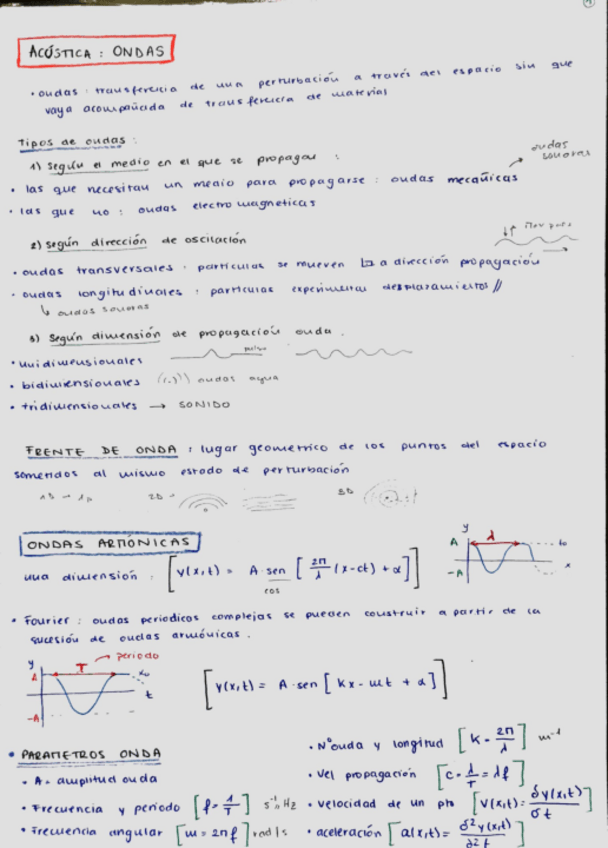 ACÚSTICA : ONDAS
• ondas : transferencia de una perturbación a través del espacio sin que
vaya acompañada de transferencia de material
Tipos de ondas :
1) según el medio en el que se propagan :
ondas
sonoras
• las que necesitan un medio para propagarse : ondas mecánicas
• las que no : ondas electromagneticas
2) según dirección de oscilación
• ondas transversales : particulas se mueven a dirección propagación
• ondas longitudinales : particulas experimentan desplazamientos //
↳ ondas sonoras
3) según dimensión de propagación onda .
• unidimensionales pulso
• bidimensionales ((·)) ondas agua
• tridimensionales → SONIDO
FRENTE DE ONDA : lugar geometrico de los puntos del espacio
sometidos al mismo estado de perturbación
2D 3D
ONDAS ARMÓNICAS
y
A λ to
-A x
una dimensión : [ y(x,t) = A·sen [ 2π/λ (x-ct) + α ] ]
cos
• Fourier : ondas periodicas complejas se pueden construir a partir de la
sucesión de ondas armónicas .
y → periodo
A T x₀
t
-A
[ y(x,t) = A·sen [ kx - ωt + α ] ]
• PARAMETROS ONDA
• A = amplitud onda
• Frecuencia y periodo [ f = 1/T ] s⁻¹, Hz
• Frecuencia angular [ ω = 2πf ] rad/s
• Nº onda y longitud [ k = 2π/λ ] m⁻¹
• Vel propagación [ c = λ/T = λf ]
• velocidad de un pto [ v(x,t) = δy(x,t)/δt ]
• aceleración [ a(x,t) = δ²y(x,t)/δ²t ]